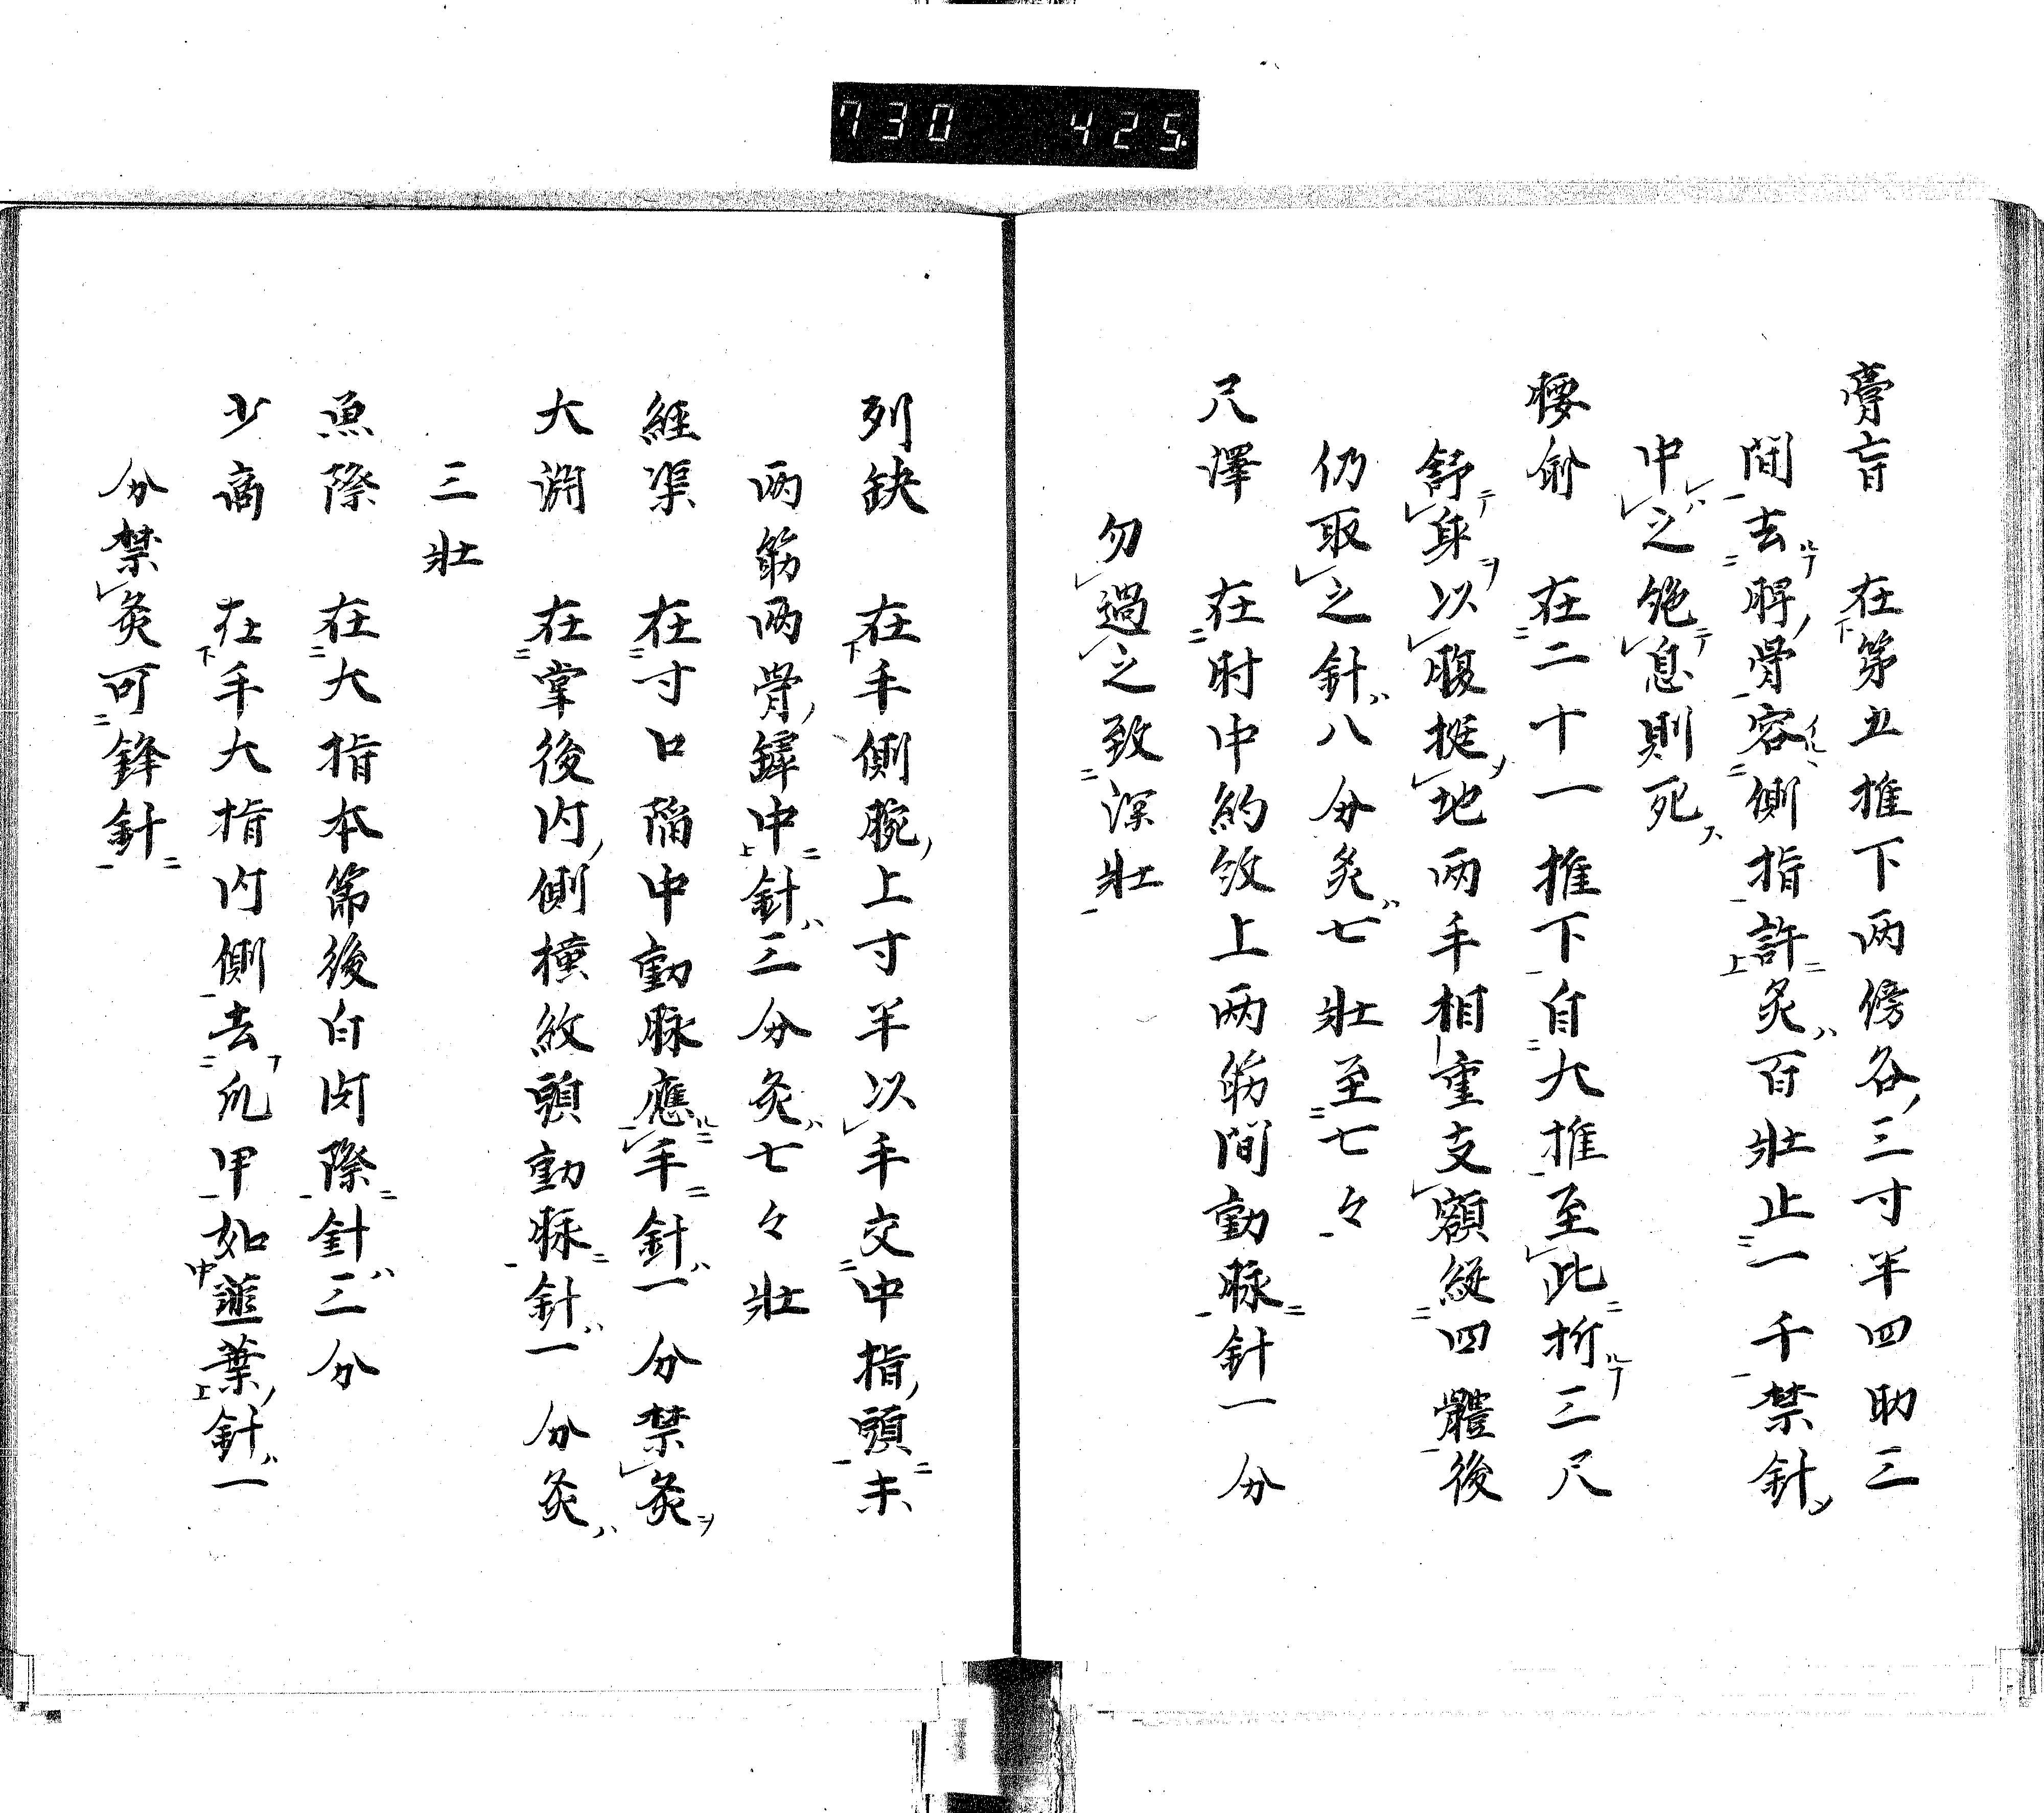 730 425
膏肓 在第五推下两傍各三寸半四肋三
間去胛骨容側指許炙百壯止一千禁針
中之絶息則死
腰俞 在二十一推下自大推至此折三尺
舒身以腹挺地两手相重支額縦四體後
仍取之針八分炙七壯至七々
尺澤 在肘中約紋上两筋間動脉針一分
勿過之致深壯
列缺 在手側腕上寸半以手交中指頭末
两筋两骨罅中針三分灸七々壯
經渠 在寸口陥中動脉應手針一分禁灸
大渕 在掌後内側橫紋頭動脉針一分灸
三壯
魚際 在大指本節後白肉際針三分
少商 在手大指内側去爪甲如韮葉針一
分禁灸可鋒針